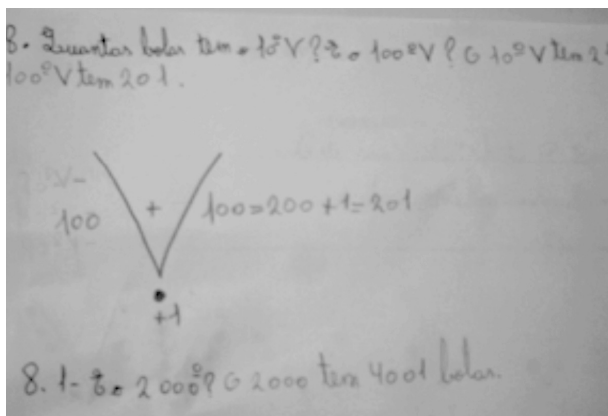 8. Quantas bolas tem o 10º V? E o 100º V? O 10º V tem 21
100º V tem 201.
100 + 100 = 200 + 1 = 201
+1
8.1 - E o 2000º? O 2000 tem 4001 bolas.